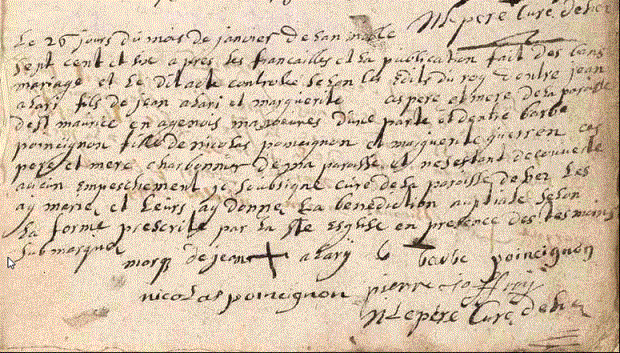 N lepere Curé de her
Le 26 jours du mois de janvier de lan mille
sept cent et six apres les fiancailles et la publication fait des bans
mariage et le dit acte controlé selon la edits du roy dentre jean
azari fils de jean azari et marguerite as pere et mere de la paroisse
de st maurice en agenois massoeuvres dune parte et dentre barbe
poinsignon fille de nicolas poinsignon et marguerite guerson ces
pere et mere charbonnier de ma paroisse et ne sestant decouverte
aucun empeschement je soubsigné curé de la paroisse de her les
aÿ marier et leurs aÿ donner la benediction nuptiale selon
la forme prescrite par la ste esglise en presence des tesmoins
submarquer
marq de jean + azarÿ barbe poinsignon
nicolas poinsignon pierre joffroy
N lepere Curé de her